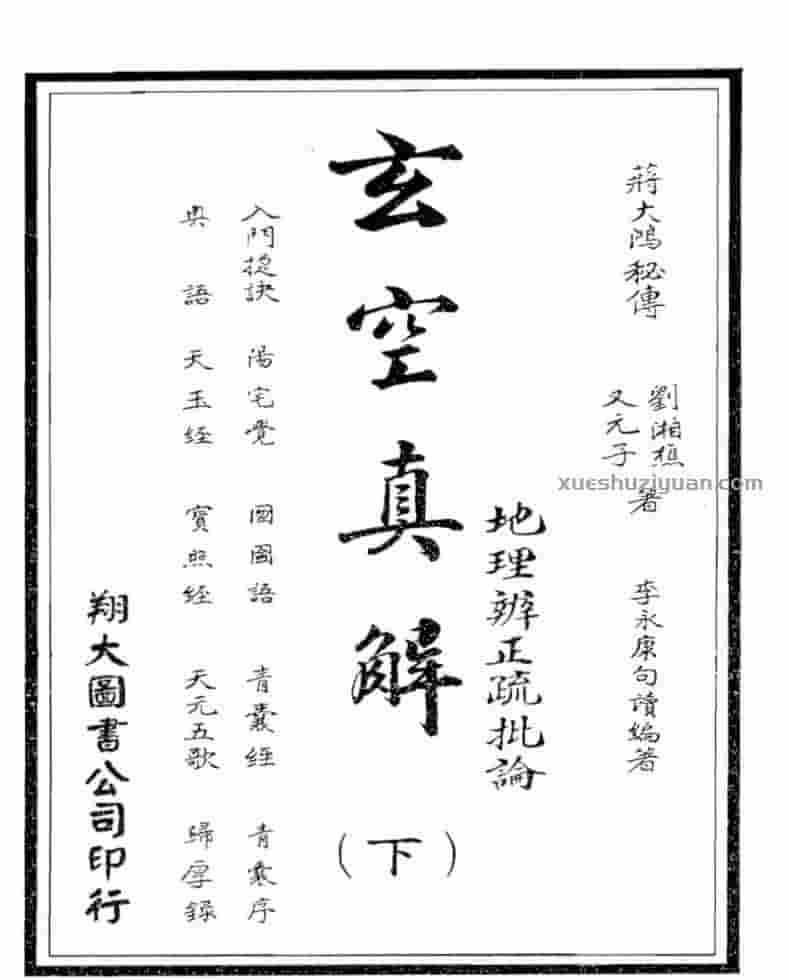 蔣大鴻秘傳
劉湘樵
又元子
著
李永康句讀編著
地理辨正疏批論
玄空真解
（下）
入門捷訣 陽宅覺 囦圖語 青囊經 青囊序
奧語 天玉經 寶照經 天元五歌 歸厚錄
翔大圖書公司印行
xueshuziyuan.com